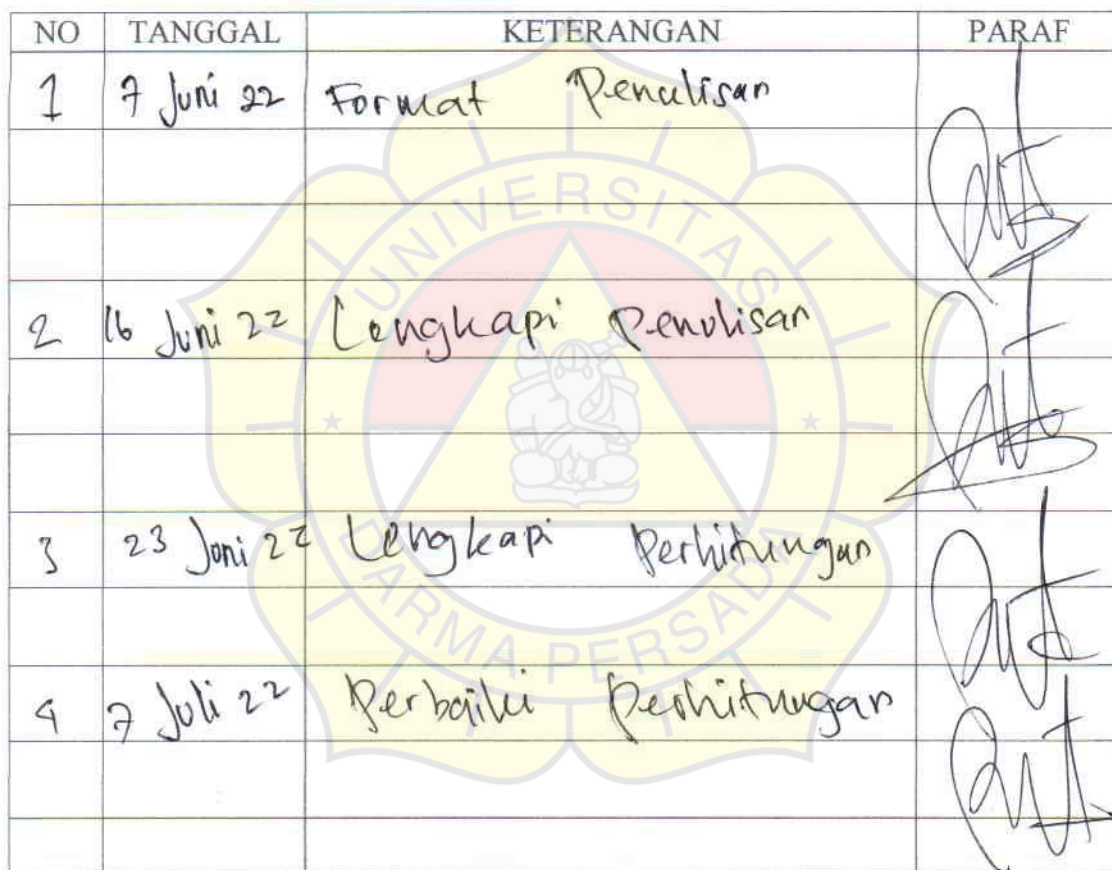 NO TANGGAL KETERANGAN PARAF
1 7 Juni 22 Format Penulisan
2 16 Juni 22 Lengkapi Penulisan
3 23 Juni 22 Lengkapi Perhitungan
4 7 Juli 22 Perbaiki Perhitungan
UNIVERSITAS
DARMA PERSADA